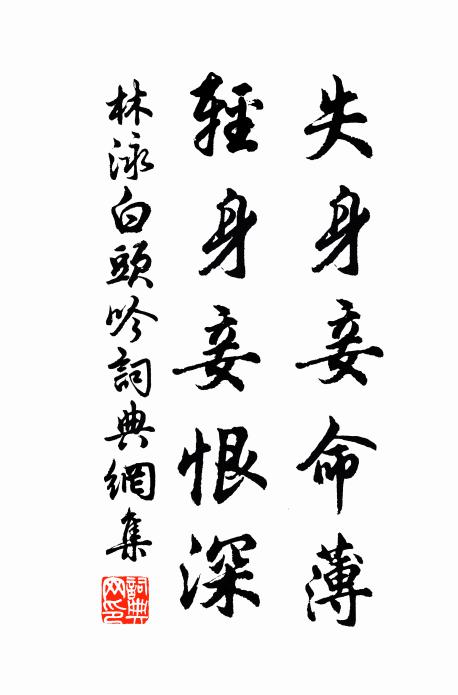 失身妾命薄
輕身妾恨深
林泳白頭吟詞典網集
詞典
网印